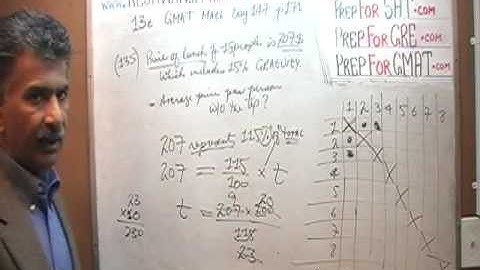 13e GMAT Math
PREPFORSAT.com
PREPFORGRE.com
PREPFORGMAT.com
(135) Price of lunch for 15 people is 207$
Which includes 15% GRATUITY
• Average price per person
w/o the tip?
207 represents 115% of TOTAL
207 = 115/100 × t
t = 207 × 100
115
23
9 20
23
×10
230
1 2 3 4 5 6 7 8
1
2
3
4
5
6
7
8